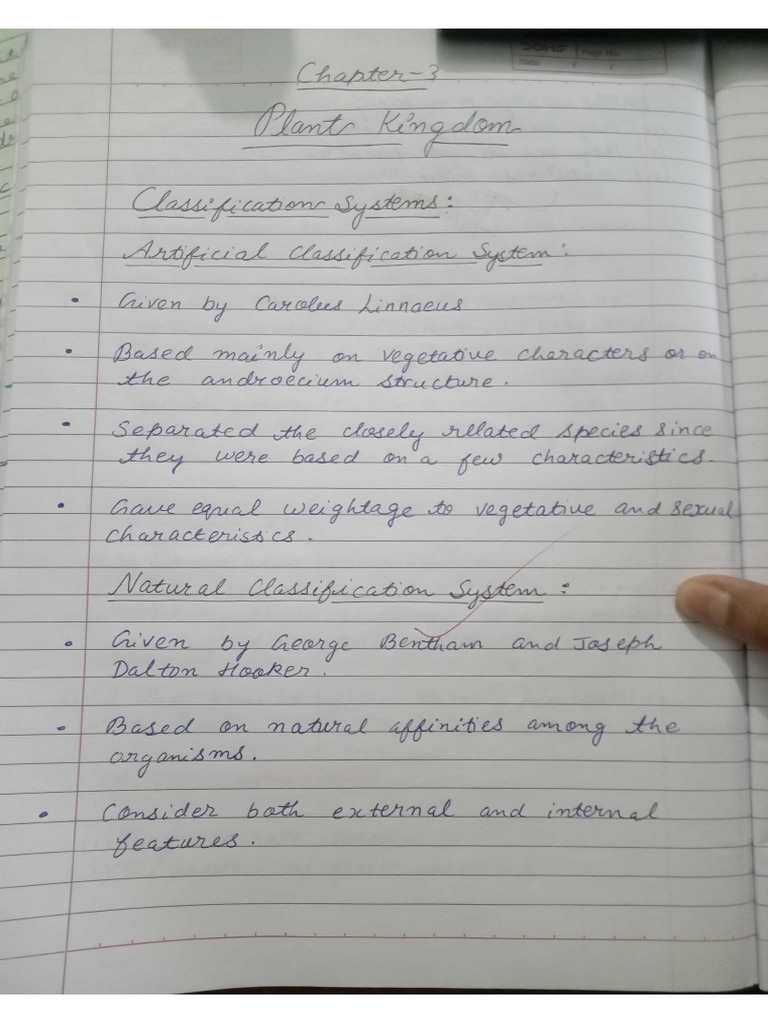 Page No.
Date: / /
Chapter-3
Plant Kingdom
Classification Systems:
Artificial Classification System:
• Given by Carolus Linnaeus
• Based mainly on vegetative characters or on
the androecium structure.
• Separated the closely rllated species since
they were based on a few characteristics.
• Gave equal weightage to vegetative and sexual
characteristics.
Natural Classification System:
• Given by George Bentham and Joseph
Dalton Hooker.
• Based on natural affinities among the
organisms.
• Consider both external and internal
features.